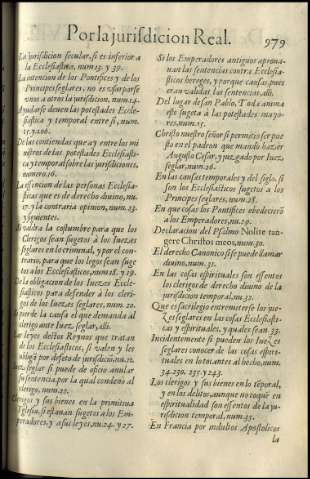 Por la jurisdicion Real. 979
La jurisdicion secular, si es inferior a
la Ecclesiastica, num.13. y 30.
La intencion de los Pontifices y de los
Principes seglares, no es usurparse
unos a otros la jurisdicion, num.14.
Ayudarse deven las potestades Ecclesiastica
y temporal entre si, num.
15. y 266.
De las contiendas que ay entre los ministros
de las potestades Ecclesiastica
y temporal sobre las jurisdiciones,
numero.16.
La essencion de las personas Ecclesiasticas
que es de derecho divino, nu.
17. y la contraria opinion, num. 23.
y siguientes.
Si valdra la costumbre para que los
Clerigos sean sugetos a los Iuezes
seglares en lo criminal, y por el contrario,
para que los legos sean sugetos
a los Ecclesiasticos, num. 18. y 19.
De la obligacion de los Iuezes Ecclesiasticos
para defender a los clerigos
de los Iuezes seglares, num. 20.
de la causa el que demanda al
clerigo ante Iuez seglar, alli.
leyes destos Reynos que tratan
de los Ecclesiasticos, si valen y les
obligã por defeto de jurisdiciõ, nu. 21.
Iuez seglar si puede de oficio anular
su sentencia, por la qual condenò al
clerigo, num. 22.
Clerigos y sus bienes en la primitiva
Iglesia, si estavan sugetos a los Emperadores,
y a sus leyes, nu. 24. y 27.
Si los Emperadores antiguos aprovavan
las sentencias contra Ecclesiasticos
hereges, y por que causas, pues
eran validas las sentencias, alli.
Del lugar de san Pablo, Toda anima
este sugeta à las potestades mayores,
num. 25.
Christo nuestro señor si permitio ser puesto
en el padron que mando hazer
Augusto Cesar, y juzgado por Iuez
seglar, num. 26.
En las causas temporales y del siglo, si
son los Ecclesiasticos sugetos a los
Principes seglares, num. 28.
En que cosas los Pontifices obedecierõ
à los Emperadores, nu. 29.
Declaracion del Psalmo Nolite tangere
Christos meos, num. 30.
El derecho Canonico si se puede llamar
divino, num. 31.
En las cosas espirituales son essentos
los clerigos de derecho divino de la
jurisdicion temporal, nu. 32.
Que es sacrilegio entremeterse los juezes
seglares en las cosas Ecclesiasticas
y espirituales, y quales sean. 33.
Incidentemente si pueden los Iuezes
seglares conocer de las cosas espirituales
en lo tocantes al hecho, num.
34. 230. 235. y 243.
Los clerigos y sus bienes en lo tẽporal,
y en los delitos, aunque no toquè en
espiritualidad son essentos de la jurisdicion
temporal, num. 35.
En Francia por indultos Apostolicos
la